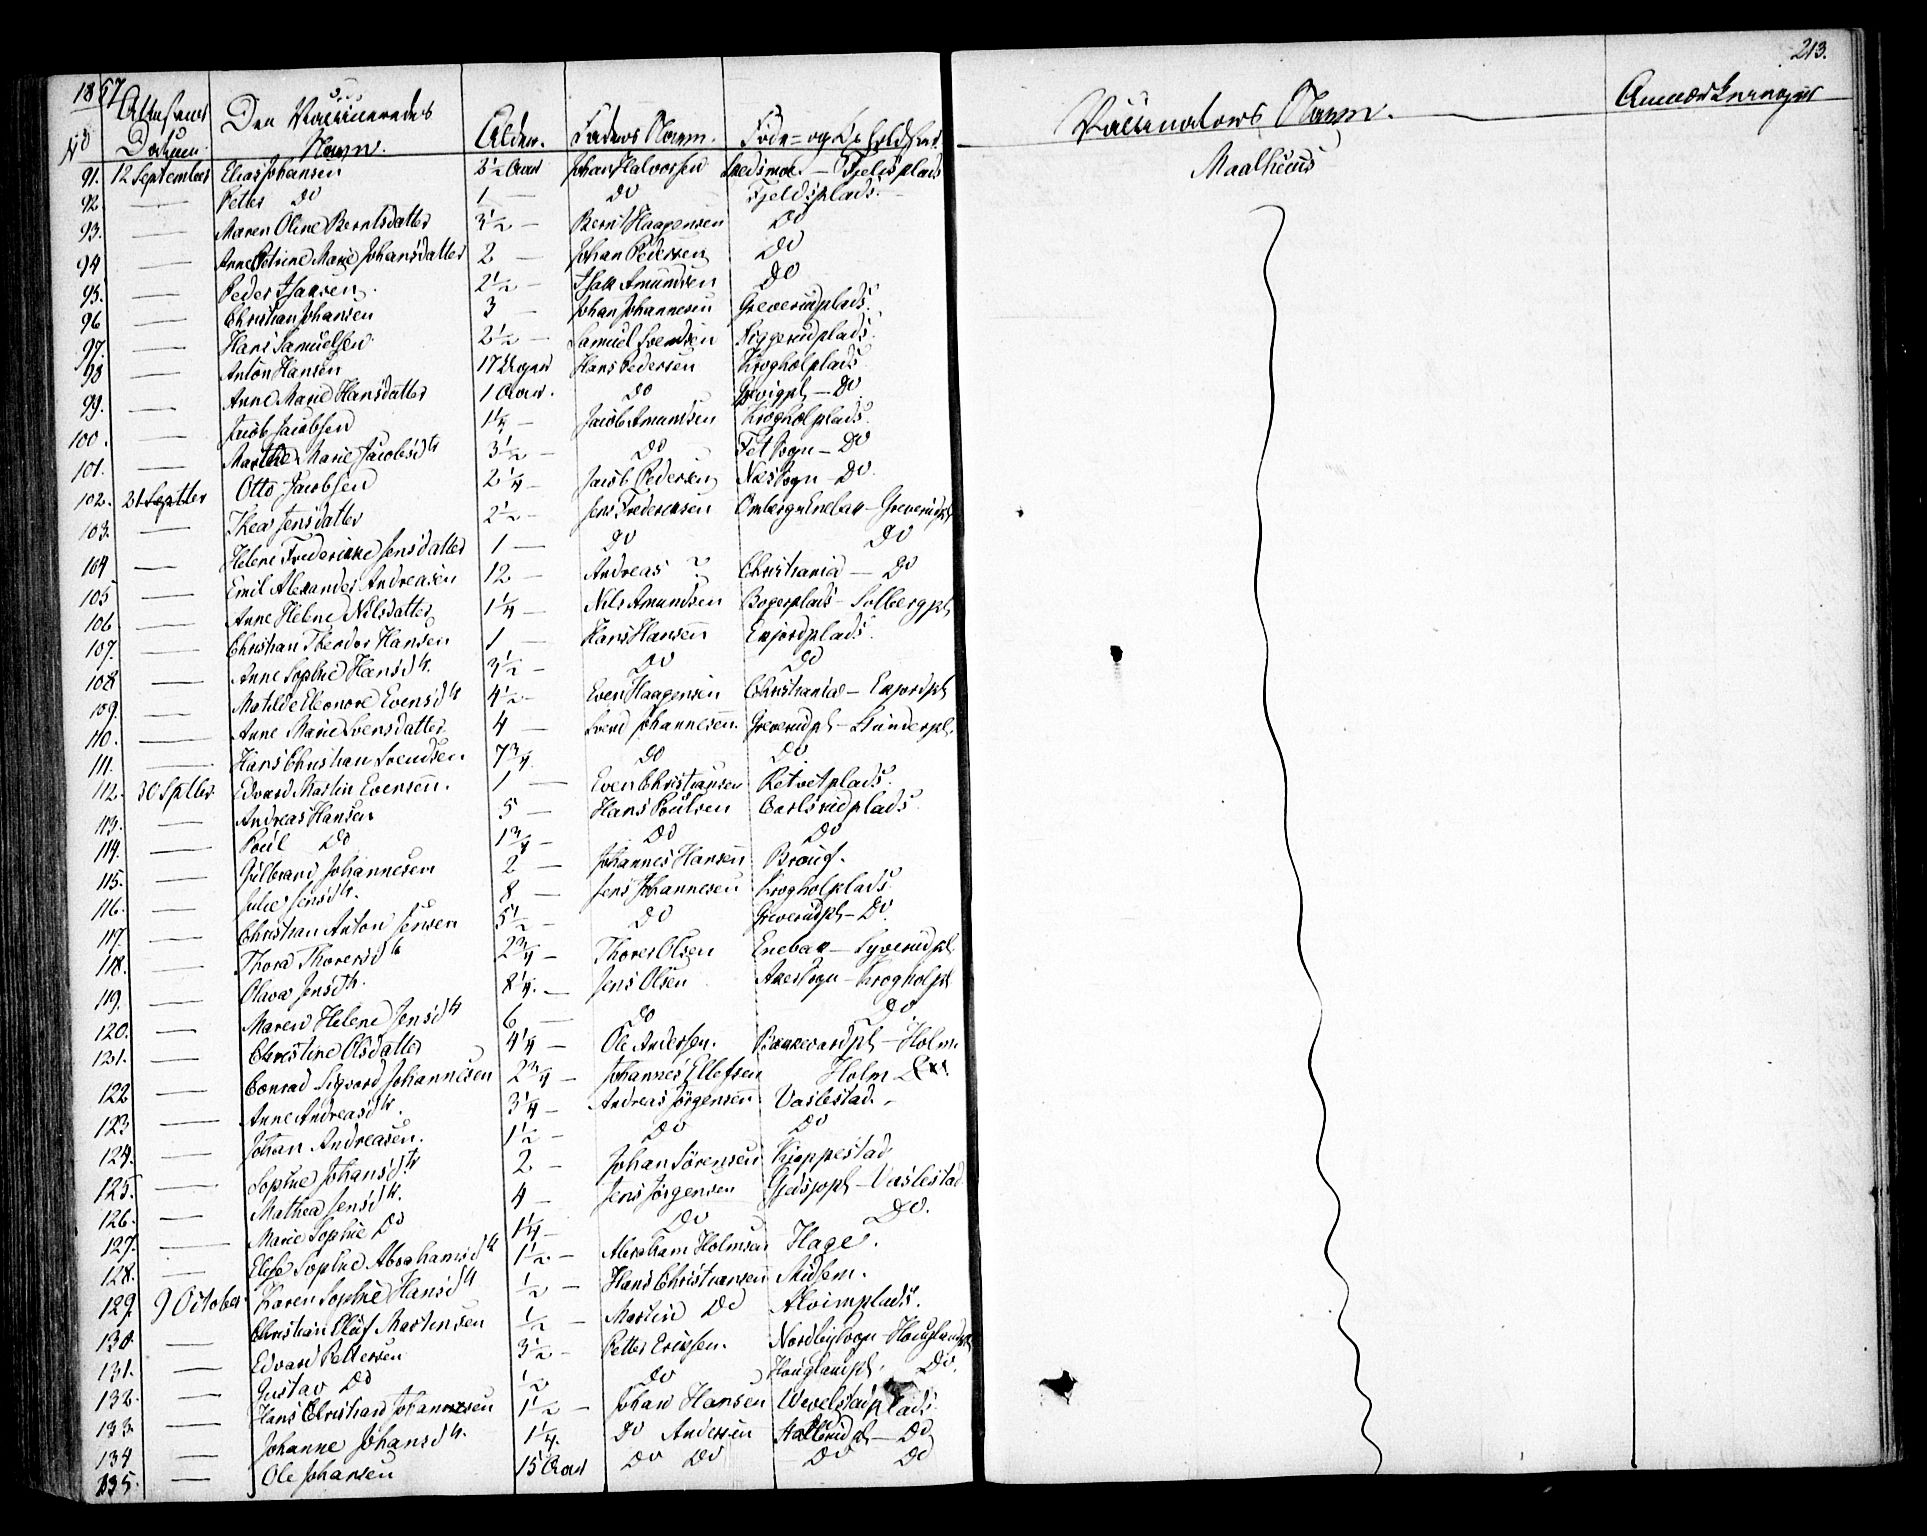 1857
213.
No Attestens Datum. Den Vaccineredes Navn. Alder. Faders Navn. Føde- og Opholdssted. Vaccinators Navn. Anmærkninger
91. 12 September Elias Johansen 2½ Aar Johan Halvorsen Skedsmoe - Fjeldsplads Maalhuus
92. — Petter Do 1 — Do Fjeldsplads. —
93. — Maren Oline Berntsdatter 3½ — Bernt Haagensen Do
94 — Anne Petrine Marie Johansdatter 2 — Johan Pedersen Do
95. — Peder Isaksen 2½ — Isak Amundsen Do
96 — Christian Johansen 3 — Johan Johannesen Greverudplads.
97. — Hans Samuelsen 2½ — Samuel Svendsen Siggerudplads.
98 — Anton Hansen 17 Uger Hans Pedersen Krogholplads
99. — Anne Marie Hansdatter 1 Aar. Do — Do
100. — Jacob Jacobsen 1¼ — Jacob Amundsen Krogholplads.
101. — Marthe Marie Jacobsdtr 3½ — Do Fet Sogn - Do
102. 21 Septber Otto Jacobsen 2¼ — Jacob Pedersen Næs Sogn - Do.
103. — Thea Jensdatter 2½ — Jens Fredriksen Enebak - Greverudpl
104 — Helene Fredrikke Jensdatter 1 — Do Do
105 — Emil Alexander Andreasen 12 — Andreas ? Christiania — Do
106 — Anne Helene Nilsdatter 1¼ — Nils Amundsen Bogerplads - Solbergpl
107. — Christian Theodor Hansen 1 — Hans Hansen Enjordplads.
108 — Anne Sophie Hansdtr. 3½ — Do Do
109. — Matilde Eleonore Evensdtr 4½ — Even Haagensen Christiania - Enjordpl
110. — Anne Marie Svensdatter 4 — Svend Johannesen. Greverudpl -
111. — Hans Christian Svendsen 7¾. Do Do
112. 30 Sptbr. Edvard Martin Evensen. 1 — Even Christiansen Retvetplads.
113. — Andreas Hansen 5 — Hans Poulsen Carlsrudplads.
114. — Poul Do 1¾ — Do Do
115. — Gulbrand Johannesen 2 — Johannes Hansen
116. — Julie Jensdtr. 8 — Jens Johannesen Krogholplads
117. — Christian Anton Jensen 5½ — Do Greverudpl - Do.
118. — Thora Thoresdtr 2¾ — Thorer Olsen Enebak - Syverudpl.
119. — Olava Jensdtr. 8¼. — Jens Olsen Aker Sogn - Krogholpl
120. — Maren Helene Jensdtr 6 — Do Do.
121. — Christine Olsdatter 4¼ — Ole Andersen. Bakkevardpl - Holm
122 — Conrad Sigvard Johannesen 2¾ — Johannes Ellefsen Holm
123 — Anne Andreasdtr. 3¼ — Andreas Jörgensen Vaslestad. -
124. — Johan Andreasen. 1½ — Do Do
125. — Sophie Johansdtr 2 — Johan Sörensen Kjeppestad
126. — Mathea Jensdtr. 4 — Jens Jörgensen Gjedsjøpl - Vaslestad
127. — Marie Sophie Do 1¼ — Do Do.
128. — Elise Sophie Abrahamsdtr 1½ — Abraham Holmsen Hage.
129 9 October Karen Sophie Hansdtr ½ — Hans Christiansen Midsem.
130. — Christian Oluf Martinsen ½ — Martin Do Alvimplads.
131. — Edvard Pettersen 3½ — Petter Ericksen. Nordby Sogn - Houglandpl
132. — Gustav Do ½ Do Houglandpl. Do.
133. — Hans Christian Johannesen 1½ — Johan Hansen Vevelstadplads
134 — Johanne Johansdtr. 1¼. Do Andersen — Do
135. — Ole Johansen 15 Aar Do Do Do Do